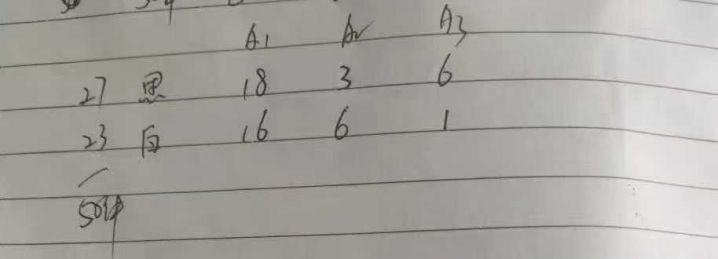 A1 A2 A3
27 黑 18 3 6
23 白 16 6 1
50钟